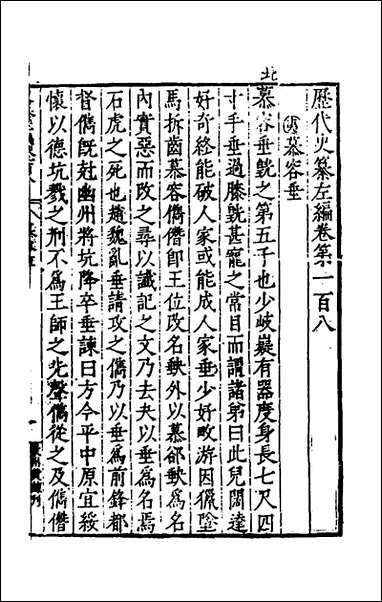 歷代史纂左編卷第一百八
國慕容垂
北
慕容垂皝之第五子也少岐嶷有器度身長七尺四
寸手垂過膝皝甚寵之常目而謂諸弟曰此兒闊達
好奇終能破人家或能成人家垂少好畋游因獵墜
馬拆齒慕容儁僭卽王位改名𡙇外以慕郤𡙇爲名
內實惡而改之尋以讖記之文乃去夬以垂爲名焉
石虎之死也趙魏亂垂請攻之儁乃以垂爲前鋒都
督儁旣尅幽州將坑降卒垂諫曰方今平中原宜綏
懷以德坑戮之刑不爲王師之先聲儁從之及儁僭